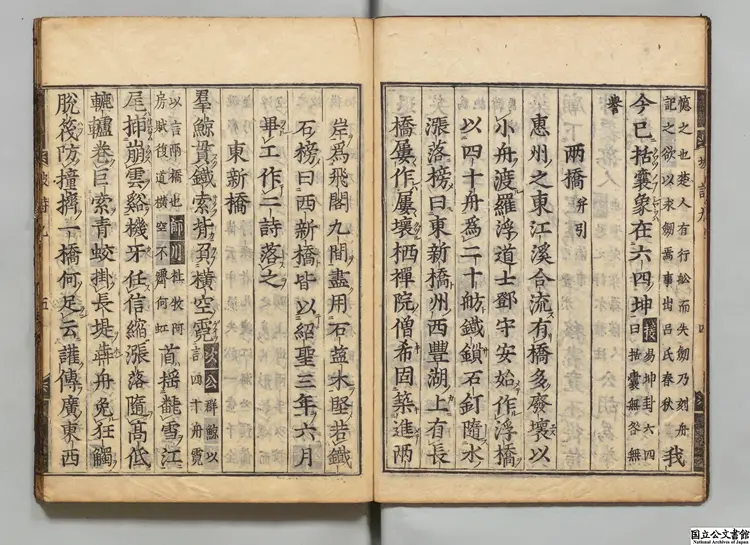 之也楚人有行舩而失劒乃刻舟
記之欲以求劒焉事出吕氏春秋
我
今已括囊象在六四坤援易坤卦六四
曰括囊無咎無
譽
兩橋并引
惠州之東江溪合流有橋多廢壞以
小舟渡羅浮道士鄧守安始作浮橋
以四十舟爲二十舫鐵鎖石矴隨水
漲落榜曰東新橋州西豐湖上有長
橋屢作屢壞栖禪院僧希固築進兩
岸爲飛閣九間盡用石盐木堅若鐵
石榜曰西新橋皆以紹聖三年六月
畢工作二詩落之
東新橋
羣鯨貫鐵索背負橫空霓次公群鯨以
言四十舟霓
以言兩橋也師川杜牧阿
房賦復道橫空不霽何虹
首摇翻雪江
尾挿崩雲谿機牙任信縮漲落隨高低
轆轤卷巨索青蛟掛長堤犇舟免狂觸
脫筏防撞擠一橋何足云讙傳廣東西
国立公文書館
National Archives of Japan